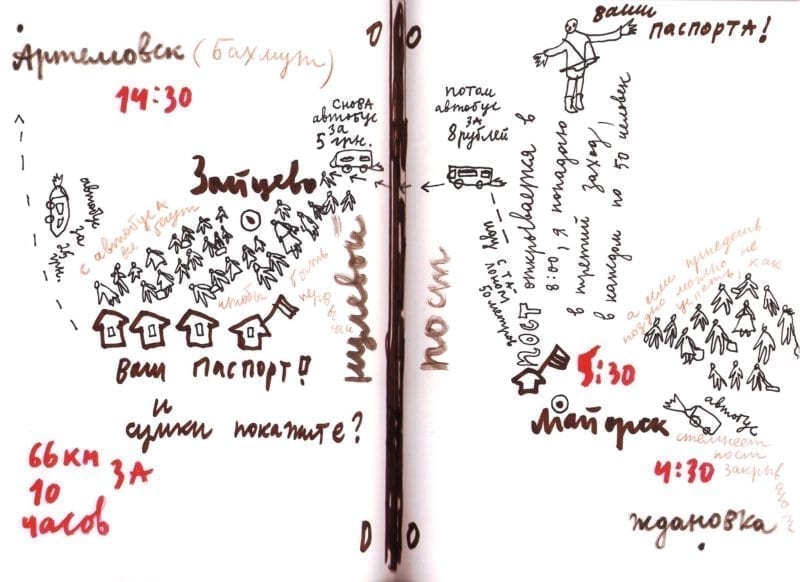 Артемовск (Бахмут)
14:30
снова
автобус
за
5 грн.
Зайцево
автобус за 25 грн.
с автобуса
все бегут
чтобы быть
первыми
ваш паспорт!!
и
сумки покажите?
66 км
за
10
часов
нулевой
пост
ваши
паспорта!
потом
автобус
за
8 рублей
пост открывается в
8:00, я попадаю
в третий заход!
в каждом по 50 человек
50 метров
а если приедешь
поздно можно не
успеть, как
5:30
Майорск
автобус
стемнеет
пост
закрывают
4:30
Ждановка